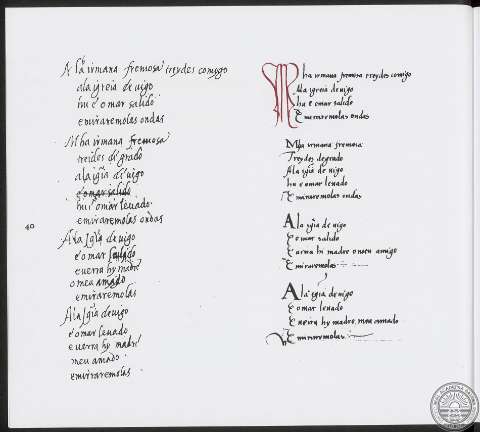 A la irmana fremosa treydes comigo
ala igreia de uigo
hu e o mar salido
e miraremolas ondas
Mha irmana fremosa
treides de grado
ala igia de uigo
e o mar salido
hu e o mar leuado
e miraremolas ondas
A la Igia de uigo
e o mar salido
e uerra hy madre
o meu amado
e miraremolas
A la Igia de uigo
e o mar leuado
e uerra hy madre
meu amado
e miraremolas
40
Mha irmana fremosa treydes comigo
Ala igreia de uigo
Hu e o mar salido
E miraremolas ondas
Mha irmana fremosa
Treydes de grado
Ala igia de uigo
hu e o mar leuado
E miraremolas ondas
A la igia de uigo
E o mar salido
E uerra hy madre o meu amigo
E miraremolas
A la igia de uigo
E o mar leuado
E uerra hy madre meu amado
E miraremolas